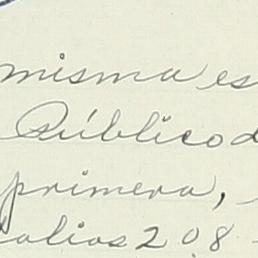 misma es
Público d
primera,
olios 208